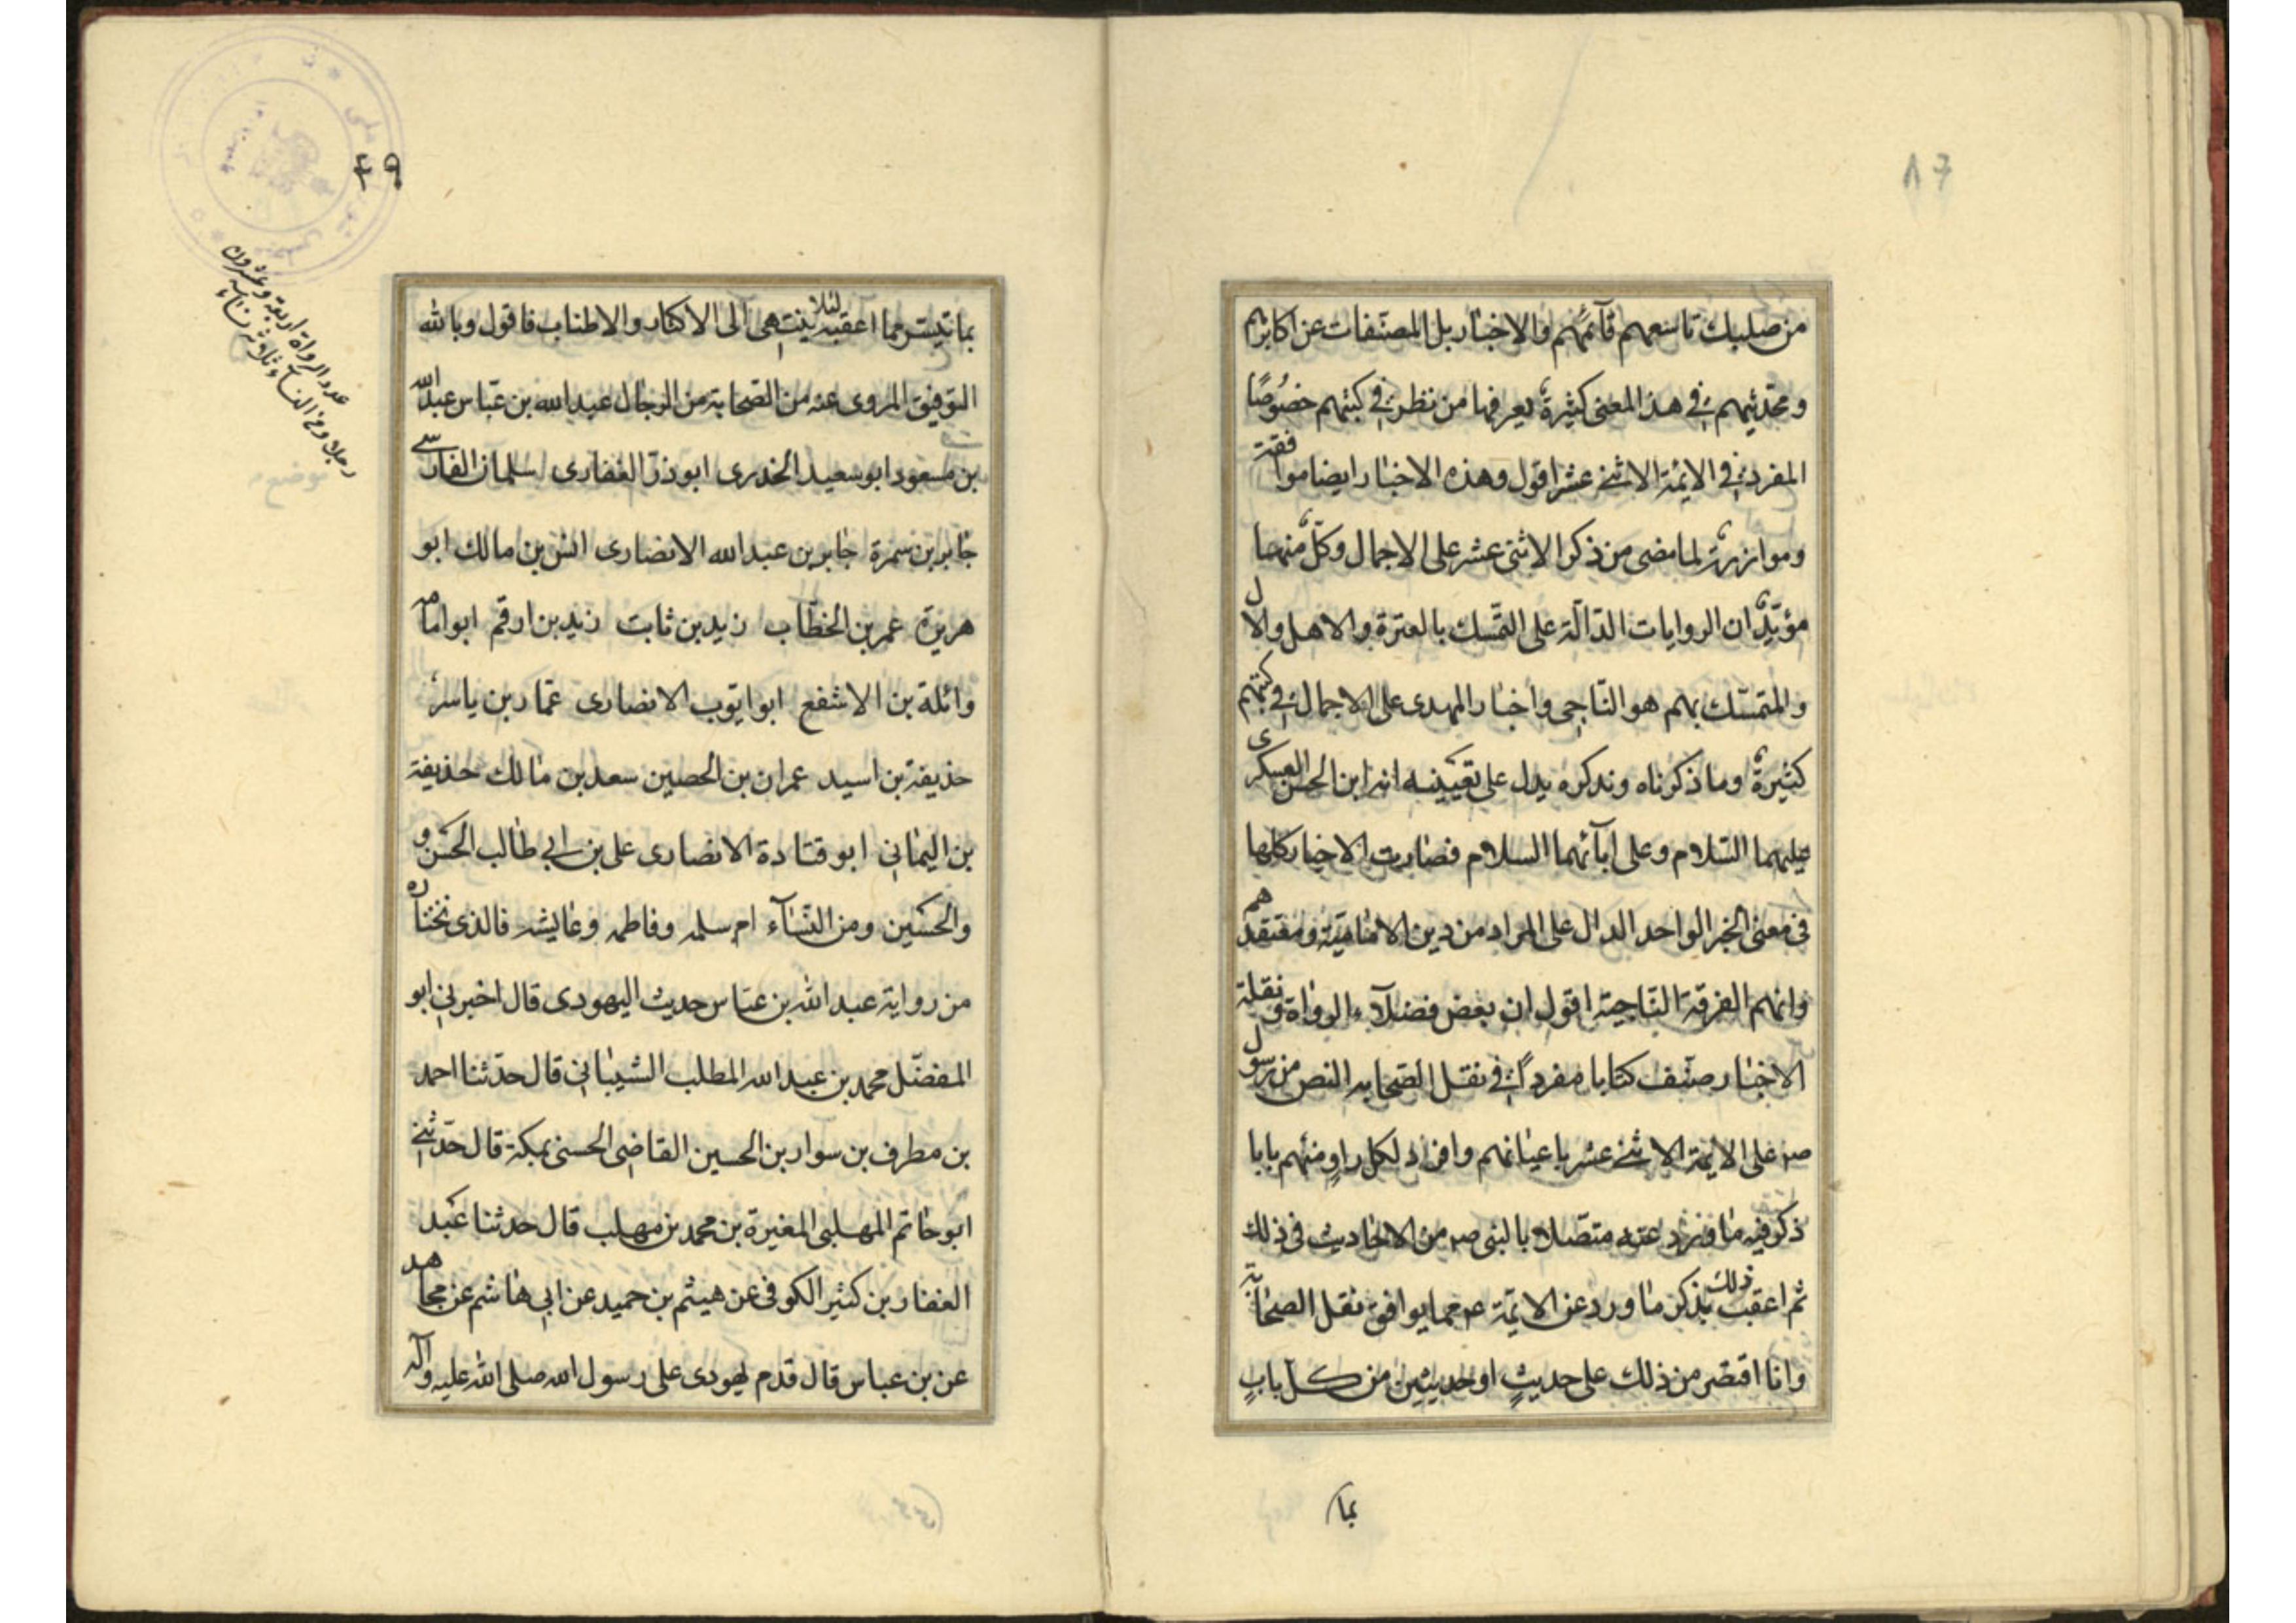 من صلبك تاسعهم قآئمهم والاخبار بل المصنفات عن اكابرهم
ومحدثيهم في هذ المعنى كثيرة يعرفها من نظر في كتبهم خصوصًا
المفرد في الايمة الاثنى عشر اقول وهذه الاخبار ايضا موافقة
وموازرة لما مضى من ذكر الاثنى عشر على الاجمال وكل منها
مؤيد ان الروايات الدالة على التمسك بالعترة والاهل والال
والمتمسك بهم هو الناجى واخبار المهدى على الاجمال في كتبهم
كثيرة وما ذكرناه ونذكره يدل على تعيينه انه ابن الحسن العسكرى
عليهما السلام وعلى ابآئهما السلام فصارت الاخبار كلها
فى معنى الخبر الواحد الدال على المراد من دين الامامية ومعتقدهم
وانهم الفرقة الناجية اقول ان بعض فضلآء الرواة ونقلة
الاخبار صنف كتابا مفردًا في نقل الصحابه النص من رسول
صه على الايمة الاثنى عشر باعيانهم وافراد لكل راوٍ منهم بابا
ذكر فيه ما ورد عنه متصلا بالنبى صه من الاحاديث فى ذلك
ثم اعقب ذلك بذكر ما ورد عن الايمة عم مما يوافق نقل الصحابة
وانا اقتصر من ذلك على حديثٍ او حديثين من كل بابٍ
بما
٤٩
بما تيسر مما اعقبه لئلا ينتهى الى الاكثار والاطناب فاقول وبالله
التوفيق المروى عنه من الصحابة من الرجال عبد الله بن عباس عبد الله
بن مسعود ابو سعيد الخدرى ابوذر الغفارى سلمان الفارسي
جابر بن سمرة جابر بن عبد الله الانصارى انس بن مالك ابو
هريرة عمر بن الخطاب زيد بن ثابت زيد بن ارقم ابو امامه
وائلة بن الاشفع ابو ايوب الانصارى عمار بن ياسر
حذيفة بن اسيد عمران بن الحصين سعد بن مالك حذيفة
بن اليماني ابو قتادة الانصارى على بن ابي طالب الحسن و
والحسين ومن النسآء ام سلمه وفاطمه وعايشه فالذى نختاره
من رواية عبد الله بن عباس حديث اليهودى قال اخبرني ابو
المفضل محمد بن عبد الله المطلب الشيباني قال حدثنا احمد
بن مطرف بن سوار بن الحسين القاضى الحسنى بمكة قال حدثنى
ابو حاتم المهلبى المغيرة بن محمد بن مهلب قال حدثنا عبد
الغفار بن كثير الكوفى عن هيثم بن حميد عن ابي هاشم عن مجاهد
عن بن عباس قال قدم يهودى على رسول الله صلى الله عليه وآله
عدد الرواة اربعة وعشرون
رجلا ومن النسآء ثلاثة نساء